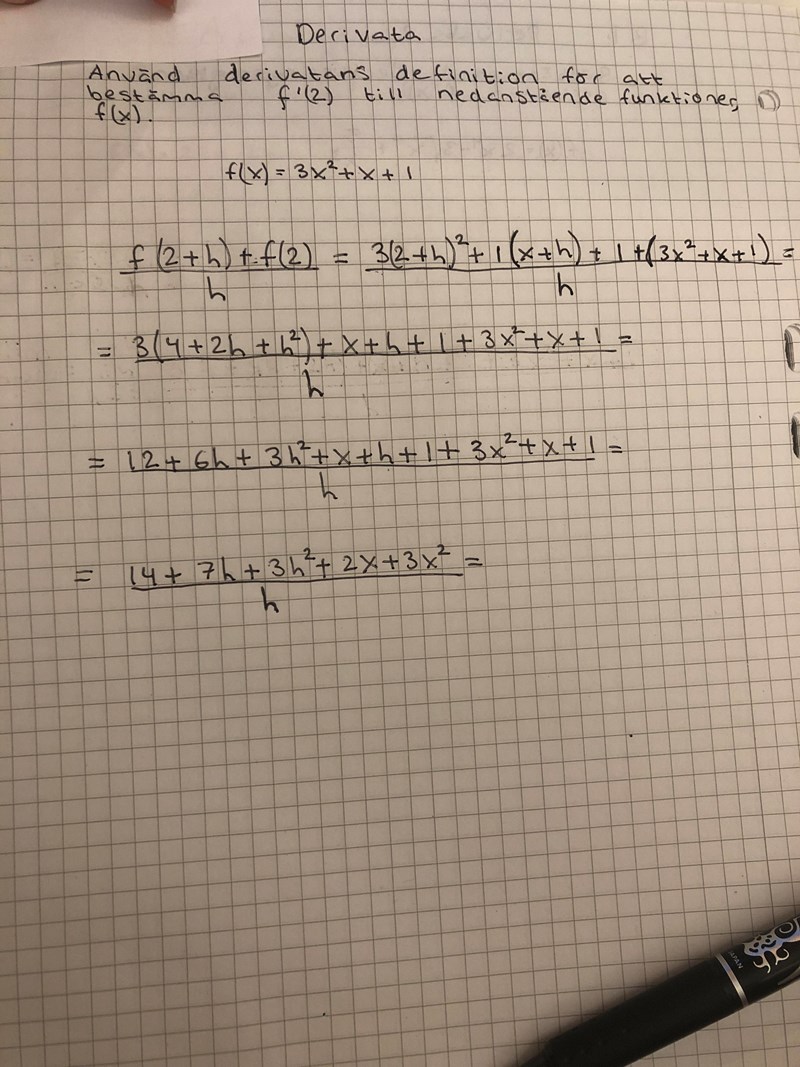 Derivata
Använd derivatans definition för att
bestämma f'(2) till nedanstående funktioner, 1)
f(x).
f(x) = 3x² + x + 1
(f(2+h) + f(2))/h = (3(2+h)² + 1(x+h) + 1 + (3x² + x + 1))/h =
= (3(4 + 2h + h²) + x + h + 1 + 3x² + x + 1)/h =
= (12 + 6h + 3h² + x + h + 1 + 3x² + x + 1)/h =
= (14 + 7h + 3h² + 2x + 3x²)/h =
JAPAN